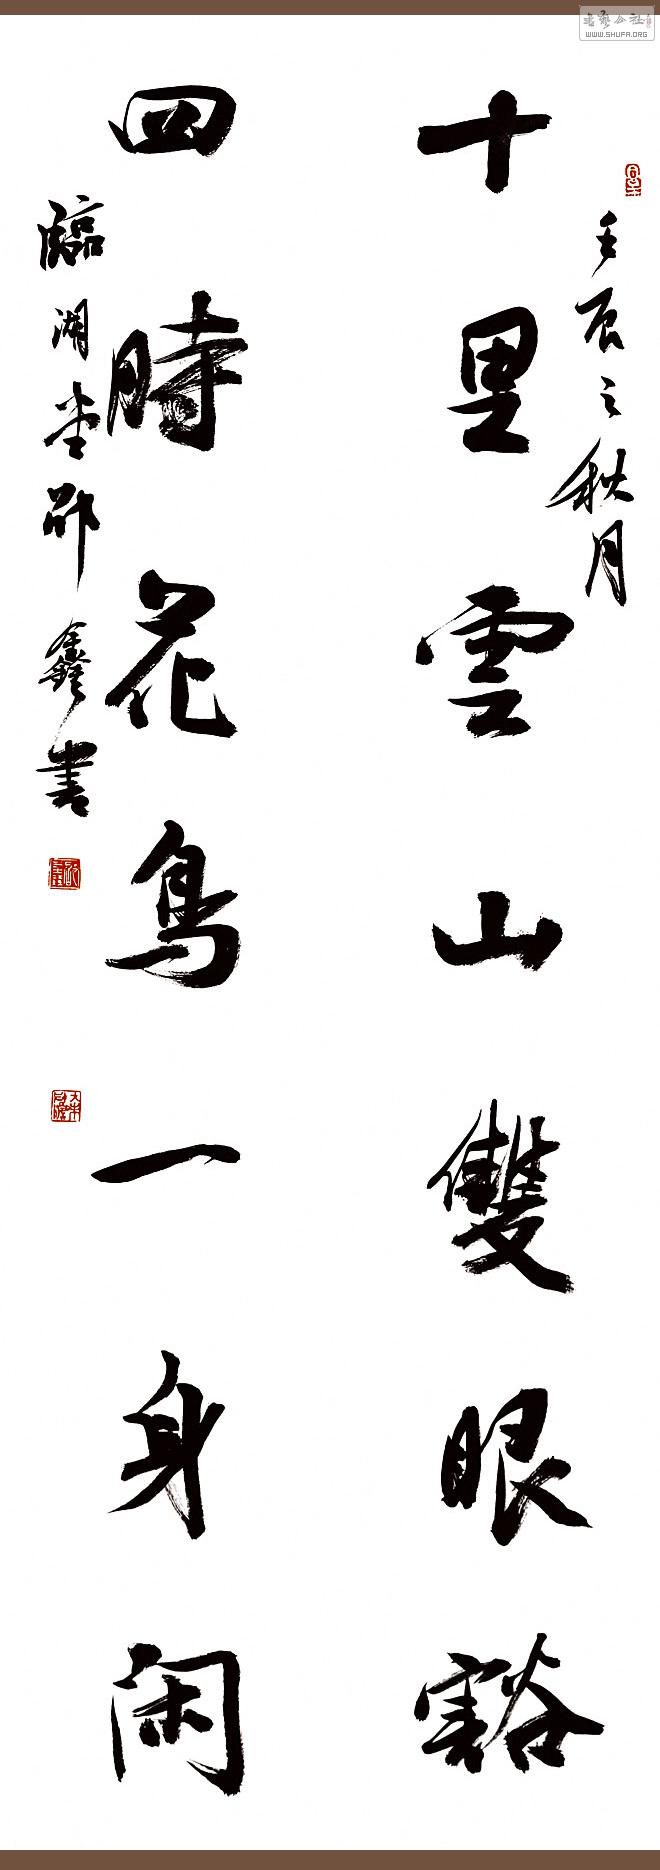 壬辰之秋月
十里雲山雙眼豁
四時花鳥一身闲
臨湖堂邵鑫書
書藝公社
WWW.SHUFA.ORG